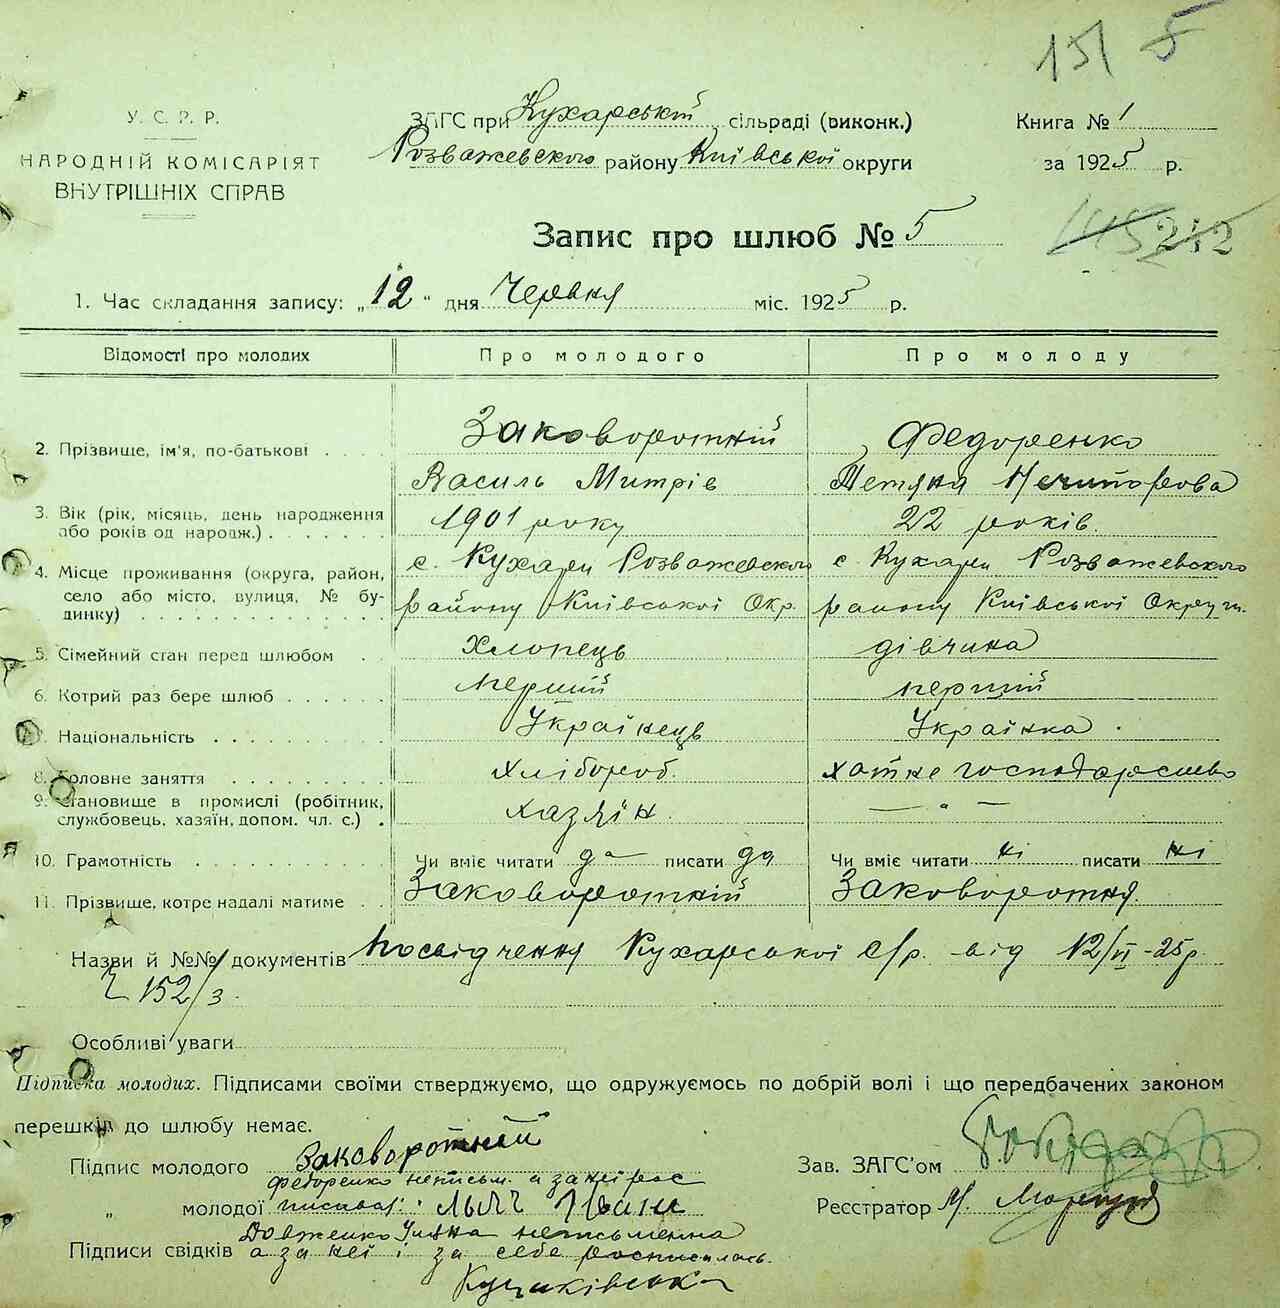 151 5
У. С. Р. Р.
НАРОДНІЙ КОМІСАРІЯТ
ВНУТРІШНІХ СПРАВ
ЗАГС при Кухарській сільраді (виконк.)
Розважевского району Київської округи
Книга № 1
за 1925 р.
Запис про шлюб № 5
145 212
1. Час складання запису: „12“ дня Червня міс. 1925 р.
Відомості про молодих Про молодого Про молоду
2. Прізвище, ім'я, по-батькові . . Заковоротній Федоренко
Василь Митрів Тетяна Нечипорова
3. Вік (рік, місяць, день народження або років од народж.) . . . . . 1901 року 22 років.
4. Місце проживання (округа, район, село або місто, вулиця, № будинку) . . . . . с. Кухари Розважевского с. Кухари Розважевского
району Київської Окр. району Київської Округи.
5. Сімейний стан перед шлюбом . . Хлопець дівчина
6. Котрий раз бере шлюб . . . . . перший перший
7. Національність . . . . . Українець Українка.
8. Головне заняття . . . . . Хлібороб. хатнє господарство
9. Становище в промислі (робітник, службовець, хазяїн, допом. чл. с.) . хазяїн. — " —
10. Грамотність . . . . . Чи вміє читати да писати да Чи вміє читати ні писати ні
11. Прізвище, котре надалі матиме . . Заковоротній Заковоротня.
Назви й №№ документів Посвідчення Кухарської с/р. від 12/VI-25р.
Ч 152/3.
Особливі уваги
Підписка молодих. Підписами своїми стверджуємо, що одружуємось по добрій волі і що передбачених законом
перешкід до шлюбу немає.
Підпис молодого Заковоротній
Зав. ЗАГС'ом
Федоренко неписьм. а за неї рос
„ молодої писывал:
Реєстратор
Довженко неписьменна
Підписи свідків а за неї і за себе росписалась.